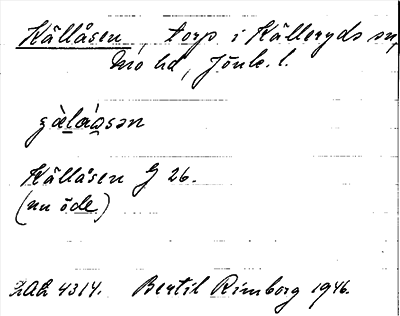 Källåsen, torp i Källeryds sn,
Mo hd, Jönk. l.
gàlàsən
Källåsen G 26.
(nu öde)
ZAL 4314. Bertil Rimborg 1946.